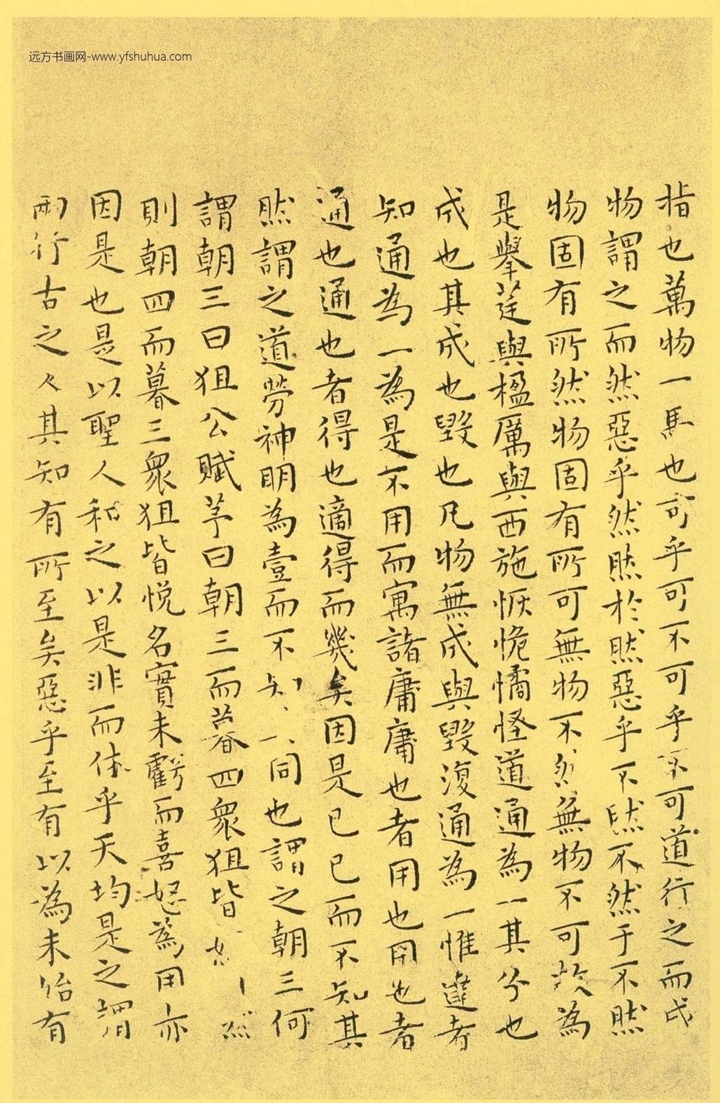 远方书画网-www.yfshuhua.com
指也萬物一馬也可乎可不可乎不可道行之而成
物謂之而然惡乎然然於然惡乎不然不然于不然
物固有所然物固有所可無物不然無物不可故為
是舉莛與楹厲與西施恢恑憰怪道通為一其分也
成也其成也毀也凡物無成與毀復通為一惟達者
知通為一為是不用而寓諸庸庸也者用也用也者
通也通也者得也適得而幾矣因是已已而不知其
然謂之道勞神明為壹而不知同也謂之朝三何
謂朝三曰狙公賦芧曰朝三而暮四衆狙皆怒然
則朝四而暮三衆狙皆悅名實未虧而喜怒為用亦
因是也是以聖人和之以是非而休乎天均是之謂
兩行古之人其知有所至矣惡乎至有以為未始有